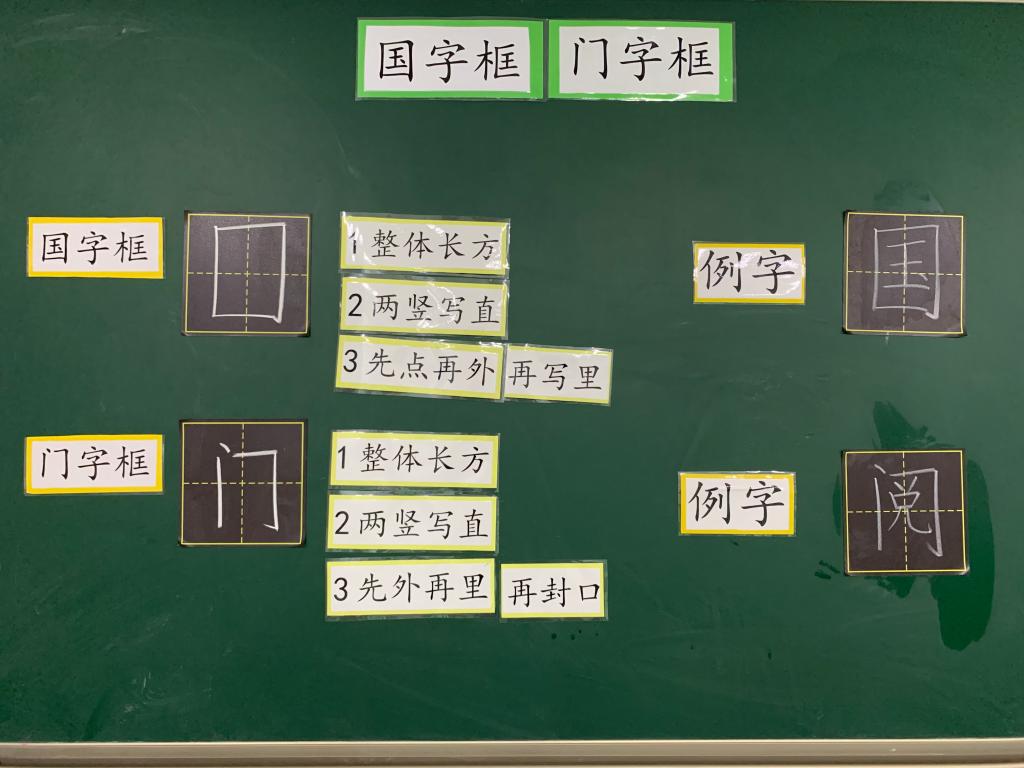 国字框 门字框
国字框 囗 1整体长方 例字 国
2两竖写直
3先点再外 再写里
门字框 门 1整体长方 例字 阅
2两竖写直
3先外再里 再封口